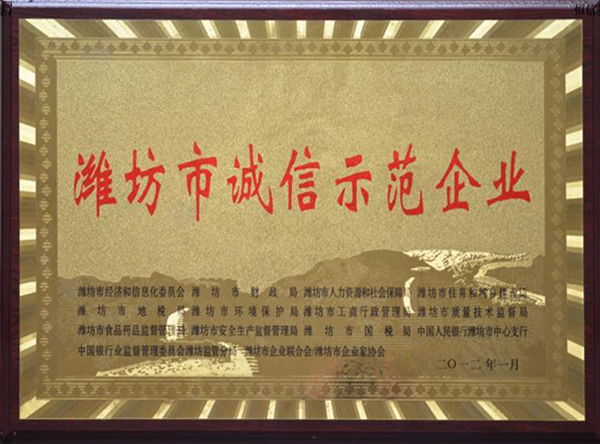 恒信
潍坊市诚信示范企业
潍坊市经济和信息化委员会 潍坊市财政局 潍坊市人力资源和社会保障局 潍坊市住房和城乡建设局
潍坊市地税局 潍坊市环境保护局 潍坊市工商行政管理局 潍坊市质量技术监督局
潍坊市食品药品监督管理局 潍坊市安全生产监督管理局 潍坊市国税局 中国人民银行潍坊市中心支行
中国银行业监督管理委员会潍坊监管分局 潍坊市企业联合会/潍坊市企业家协会
二〇一二年一月